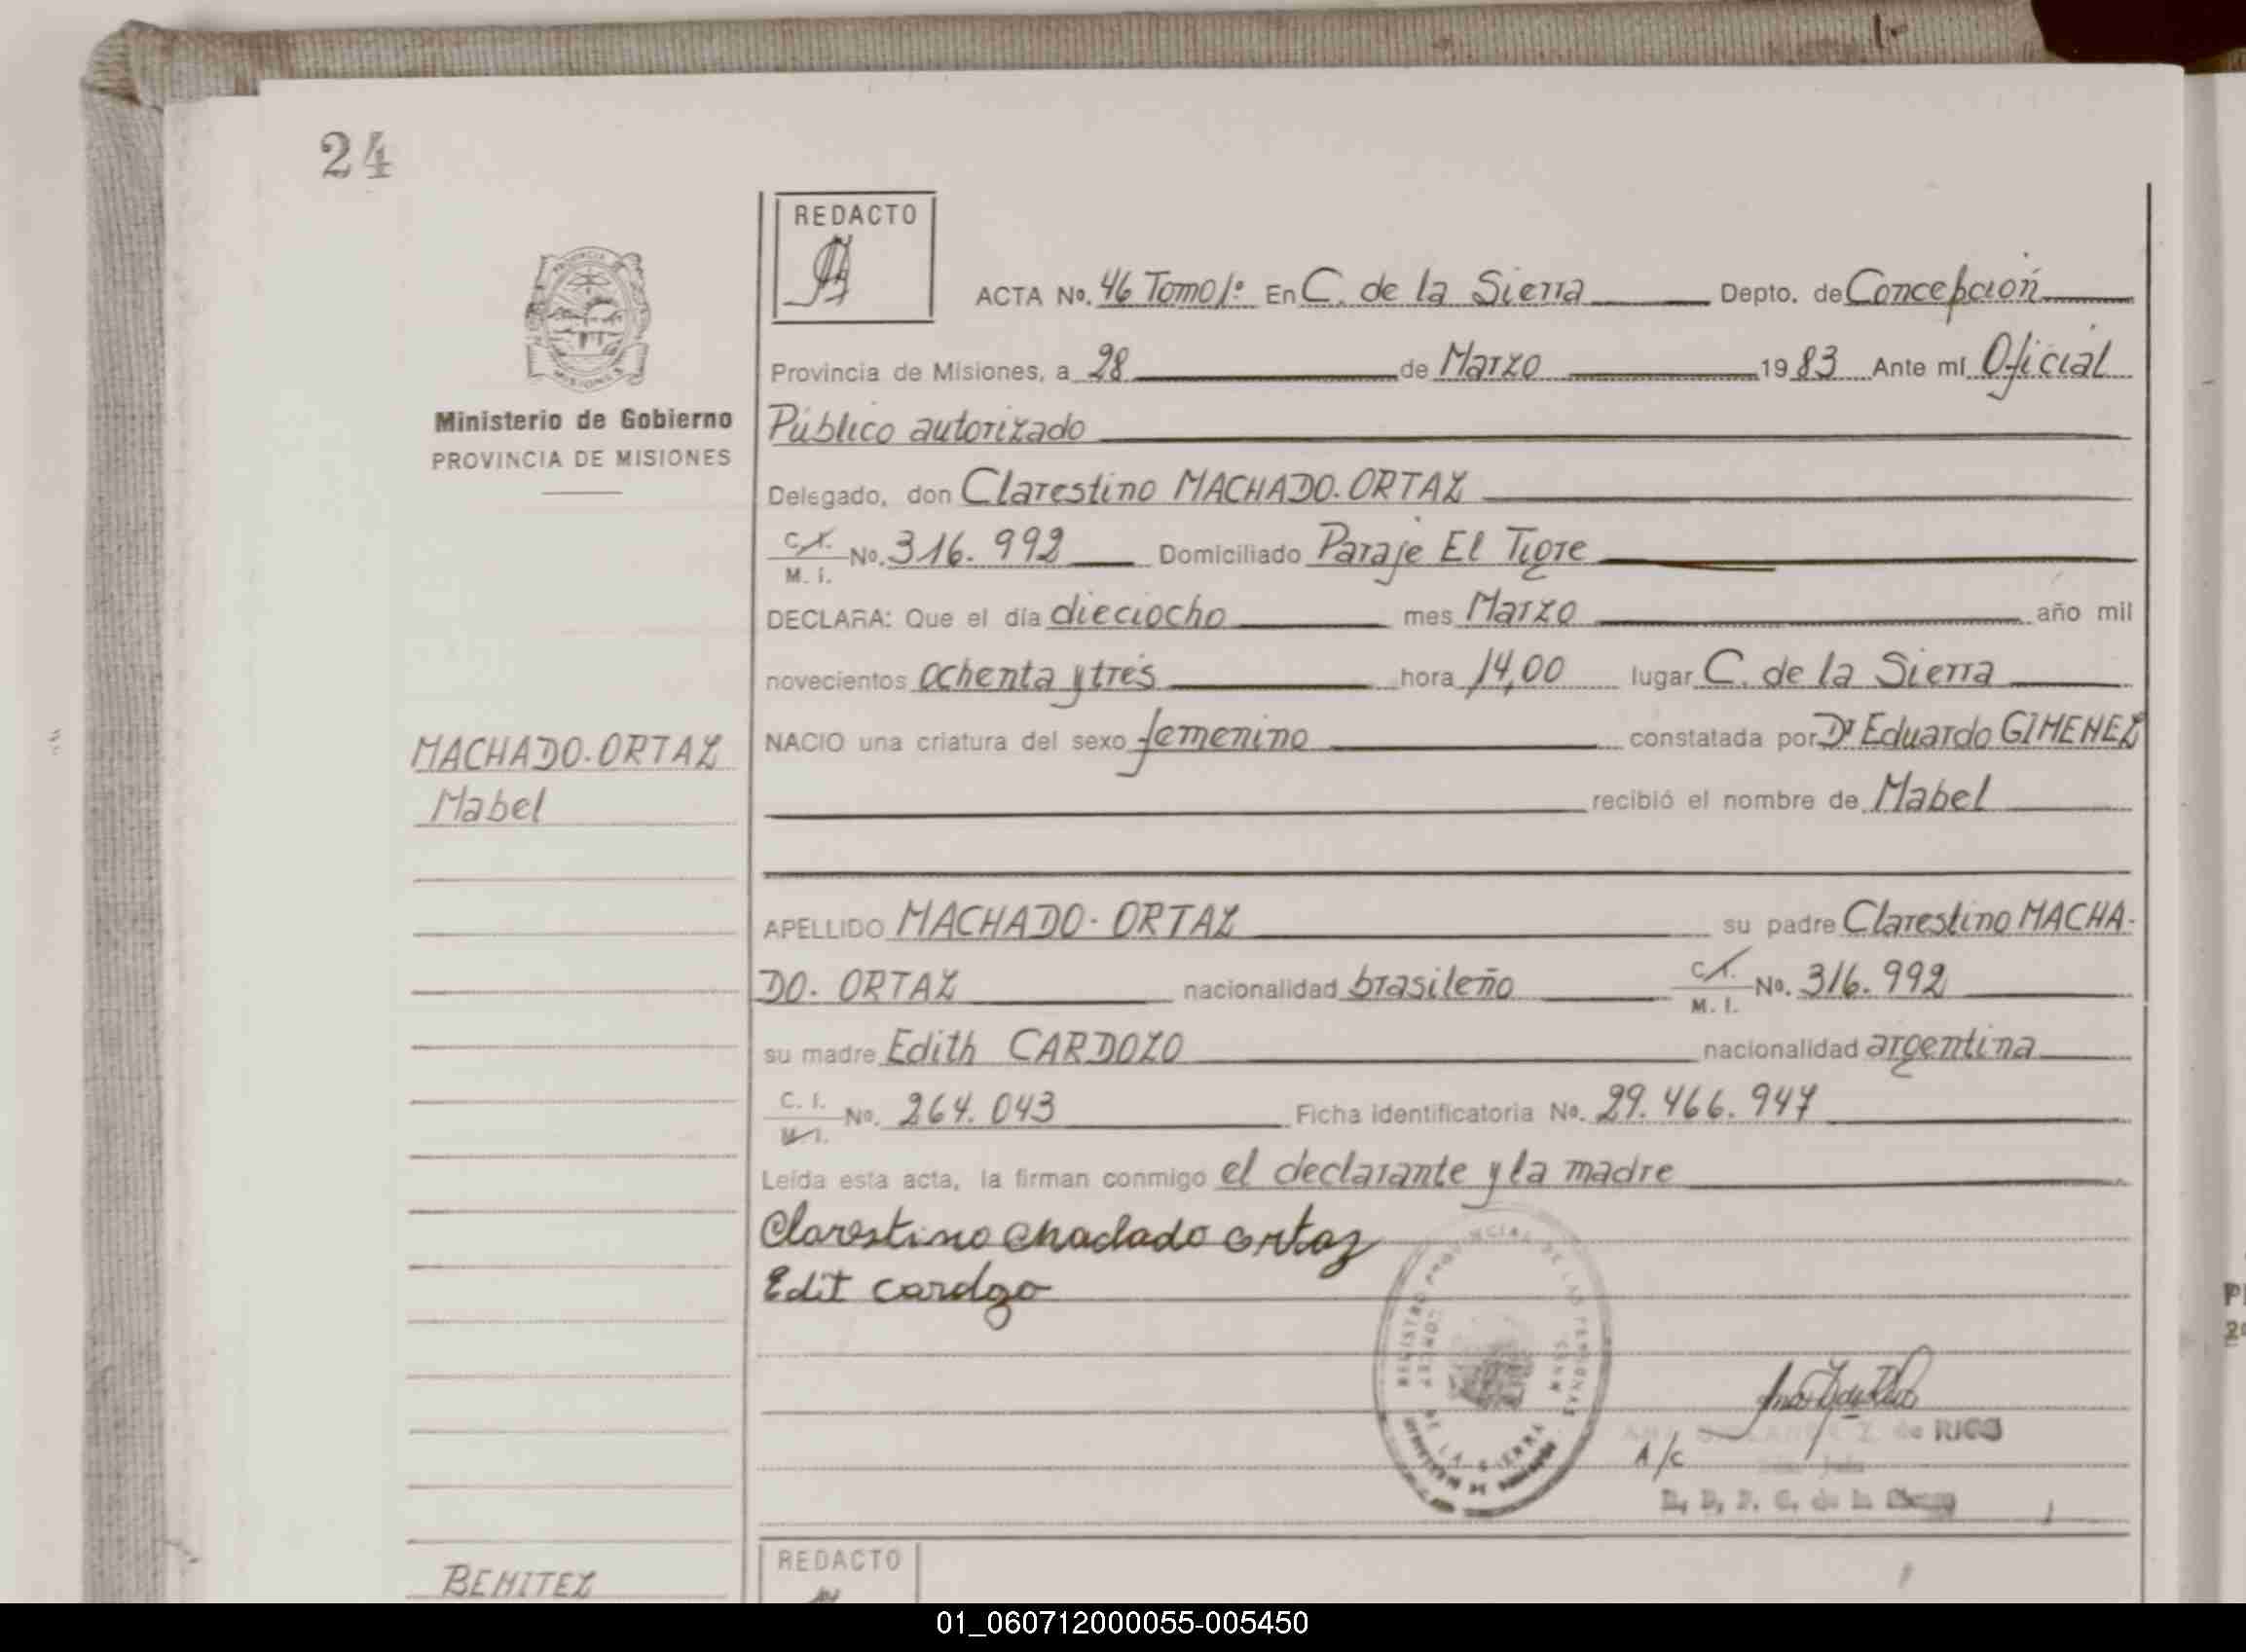 24
REDACTO
ACTA No. 46 Tomo 1º En C. de la Sierra Depto. de Concepción
Provincia de Misiones, a 28 de Marzo 1983 Ante mí Oficial
Público autorizado
Ministerio de Gobierno
PROVINCIA DE MISIONES
Delegado, don Clarestino MACHADO-ORTAZ
C.I. M. I. No. 316.992 Domiciliado Paraje El Tigre
DECLARA: Que el día dieciocho mes Marzo año mil
novecientos ochenta y tres hora 14,00 lugar C. de la Sierra
MACHADO-ORTAZ
Mabel
NACIO una criatura del sexo femenino constatada por Dr Eduardo GIMENEZ
recibió el nombre de Mabel
APELLIDO MACHADO-ORTAZ su padre Clarestino MACHA-
DO-ORTAZ nacionalidad brasileño C.I. M. I. No. 316.992
su madre Edith CARDOZO nacionalidad argentina
C. I. M. I. No. 264.043 Ficha identificatoria No. 29.466.947
Leída esta acta, la firman conmigo el declarante y la madre
Clarestino Machado Ortaz
Edit Cardozo
REGISTRO PROVINCIAL DE LAS PERSONAS
DE LA SIERRA
de RICO
A/C
de la
BENITEZ
REDACTO
01_060712000055-005450